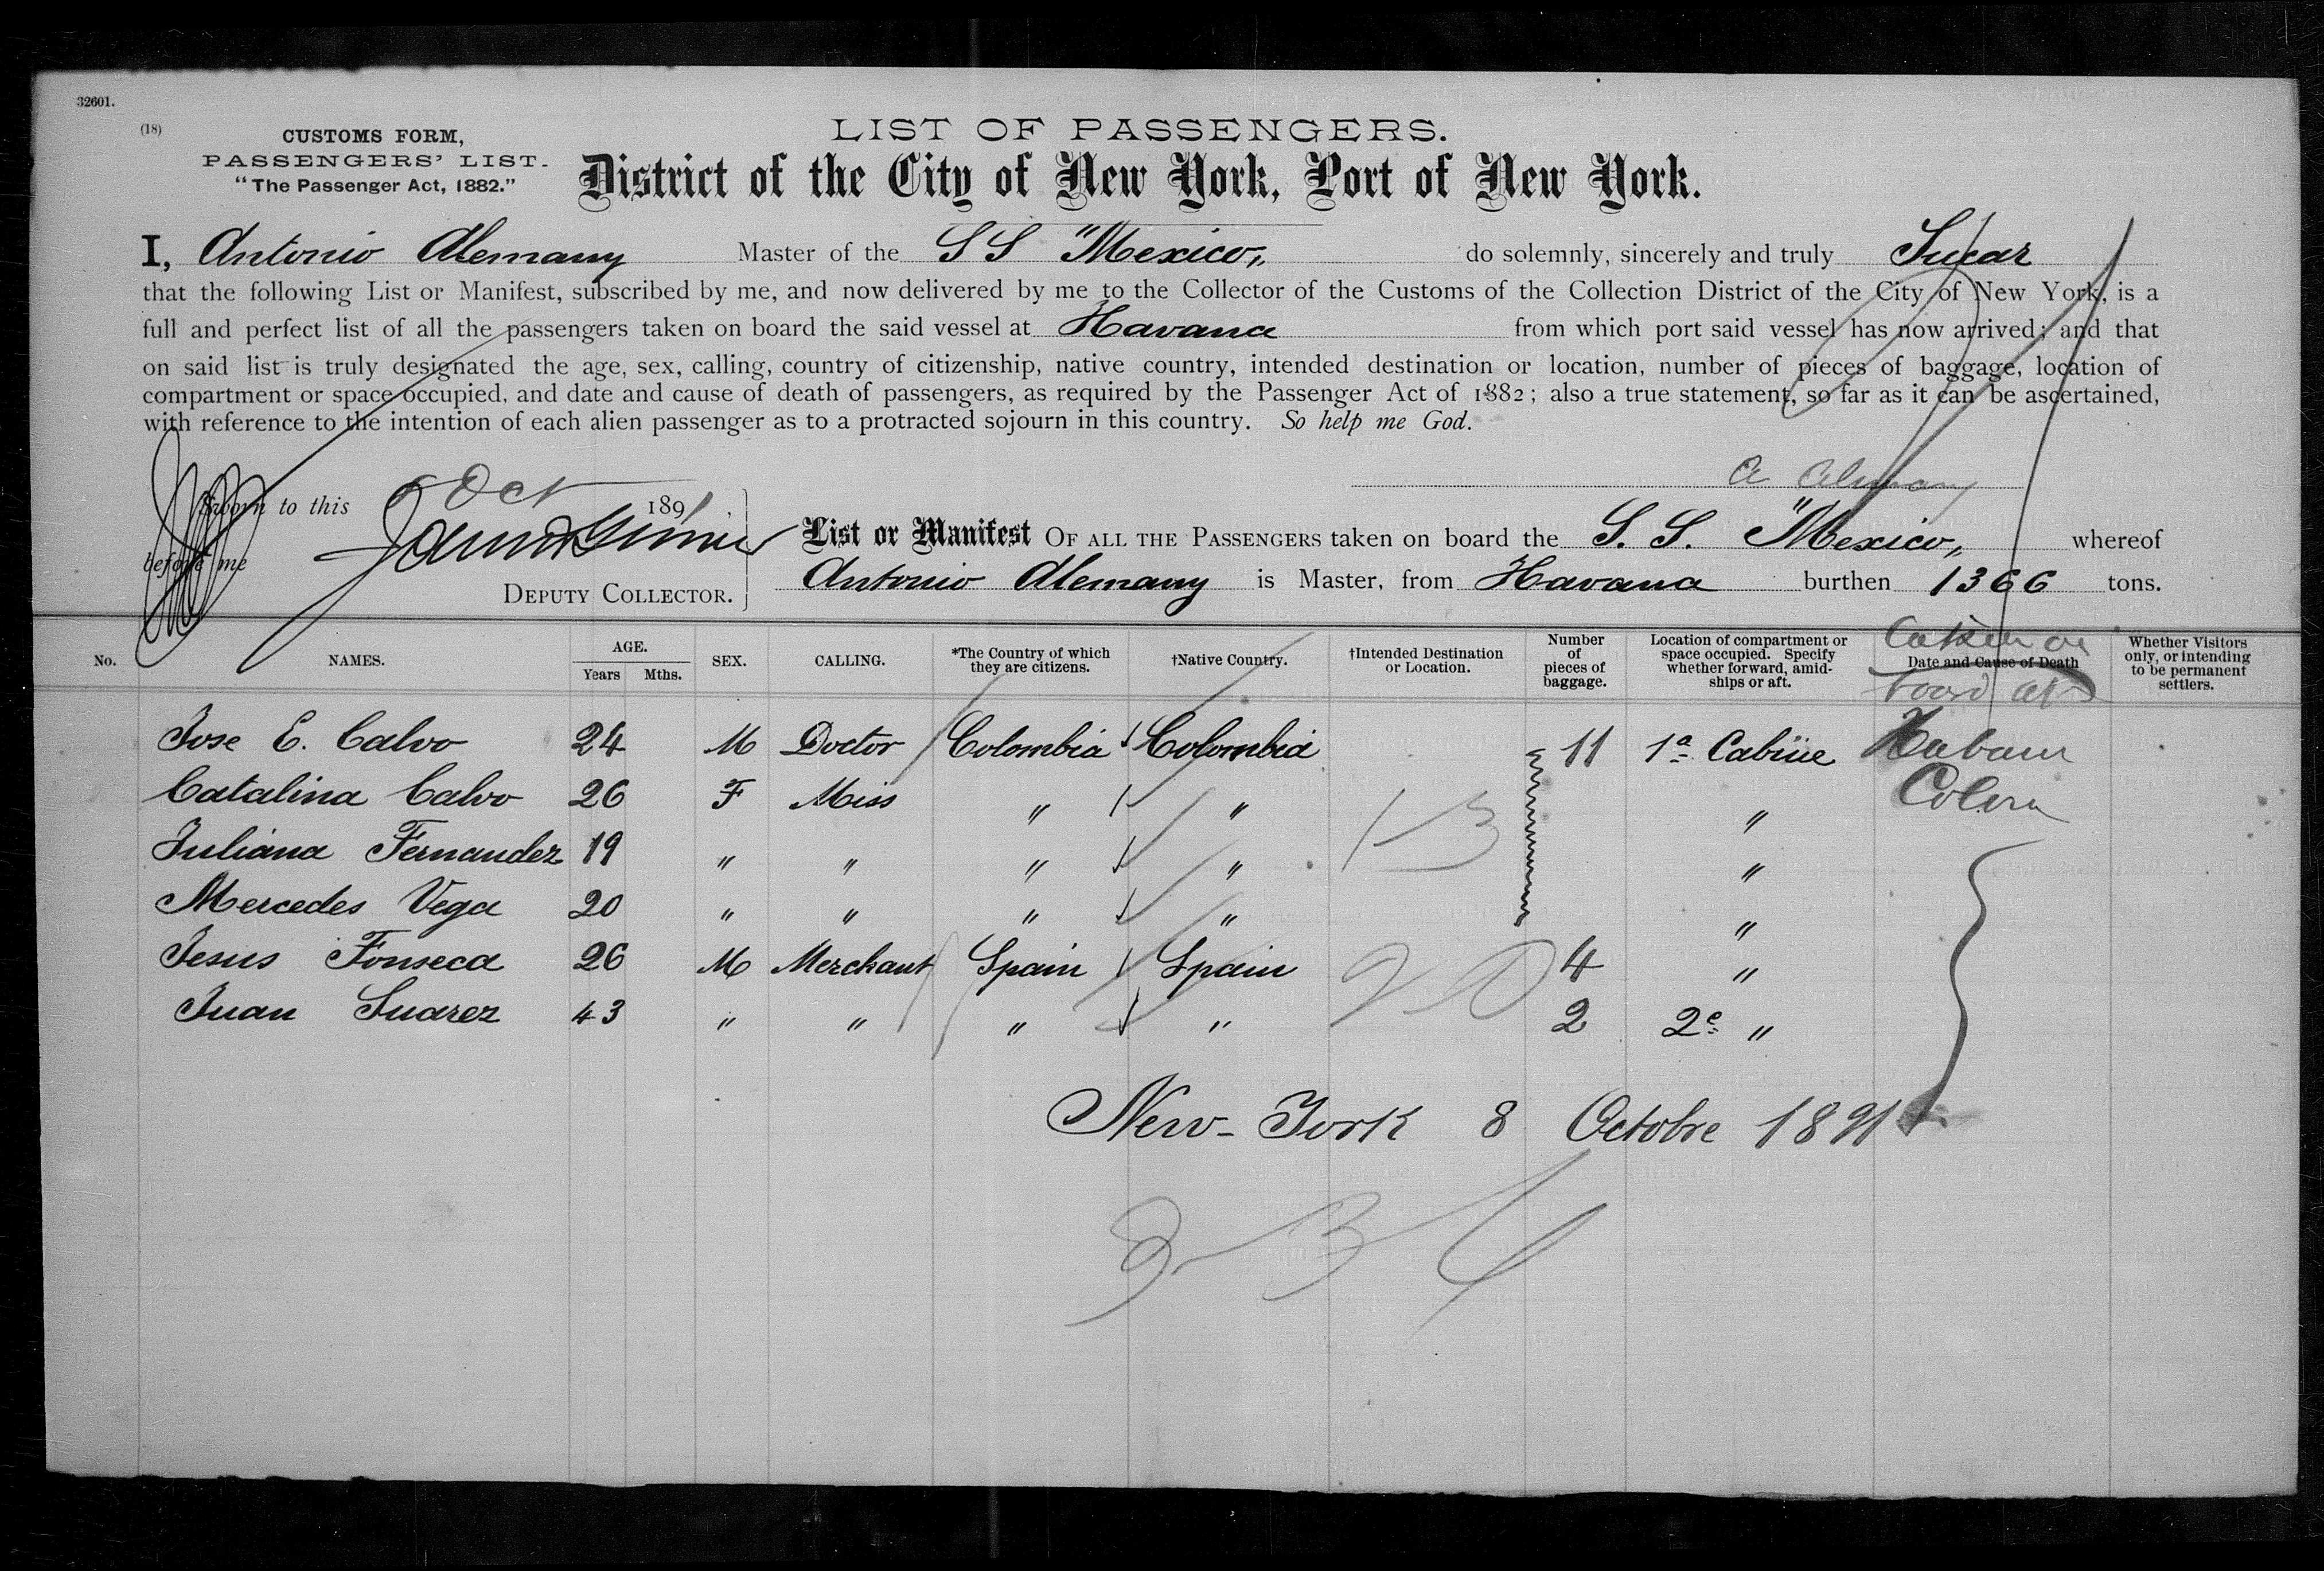 32601.
(18)
CUSTOMS FORM,
PASSENGERS' LIST.
"The Passenger Act, 1882."
LIST OF PASSENGERS.
District of the City of New York, Port of New York.
I, Antonio Alemany Master of the SS "Mexico" do solemnly, sincerely and truly Swear
that the following List or Manifest, subscribed by me, and now delivered by me to the Collector of the Customs of the Collection District of the City of New York, is a
full and perfect list of all the passengers taken on board the said vessel at Havana from which port said vessel has now arrived; and that
on said list is truly designated the age, sex, calling, country of citizenship, native country, intended destination or location, number of pieces of baggage, location of
compartment or space occupied, and date and cause of death of passengers, as required by the Passenger Act of 1882; also a true statement, so far as it can be ascertained,
with reference to the intention of each alien passenger as to a protracted sojourn in this country. So help me God.
A Alemany
Sworn to this Oct 1891,
before me
DEPUTY COLLECTOR.
List or Manifest OF ALL THE PASSENGERS taken on board the S. S. "Mexico" whereof
Antonio Alemany is Master, from Havana burthen 1366 tons.
No. NAMES. AGE. Years Mths. SEX. CALLING. *The Country of which they are citizens. †Native Country. †Intended Destination or Location. Number of pieces of baggage. Location of compartment or space occupied. Specify whether forward, amidships or aft. Date and Cause of Death Whether Visitors only, or intending to be permanent settlers.
board at
Jose E. Calvo 24 M Doctor Colombia Colombia 11 1ª Cabine
Catalina Calvo 26 F Miss " " "
Juliana Fernandez 19 " " " " "
Mercedes Vega 20 " " " " "
Jesus Fonseca 26 M Merchant Spain Spain 4 "
Juan Suarez 43 " " " " 2 2e "
New-York 8 Octobre 1891